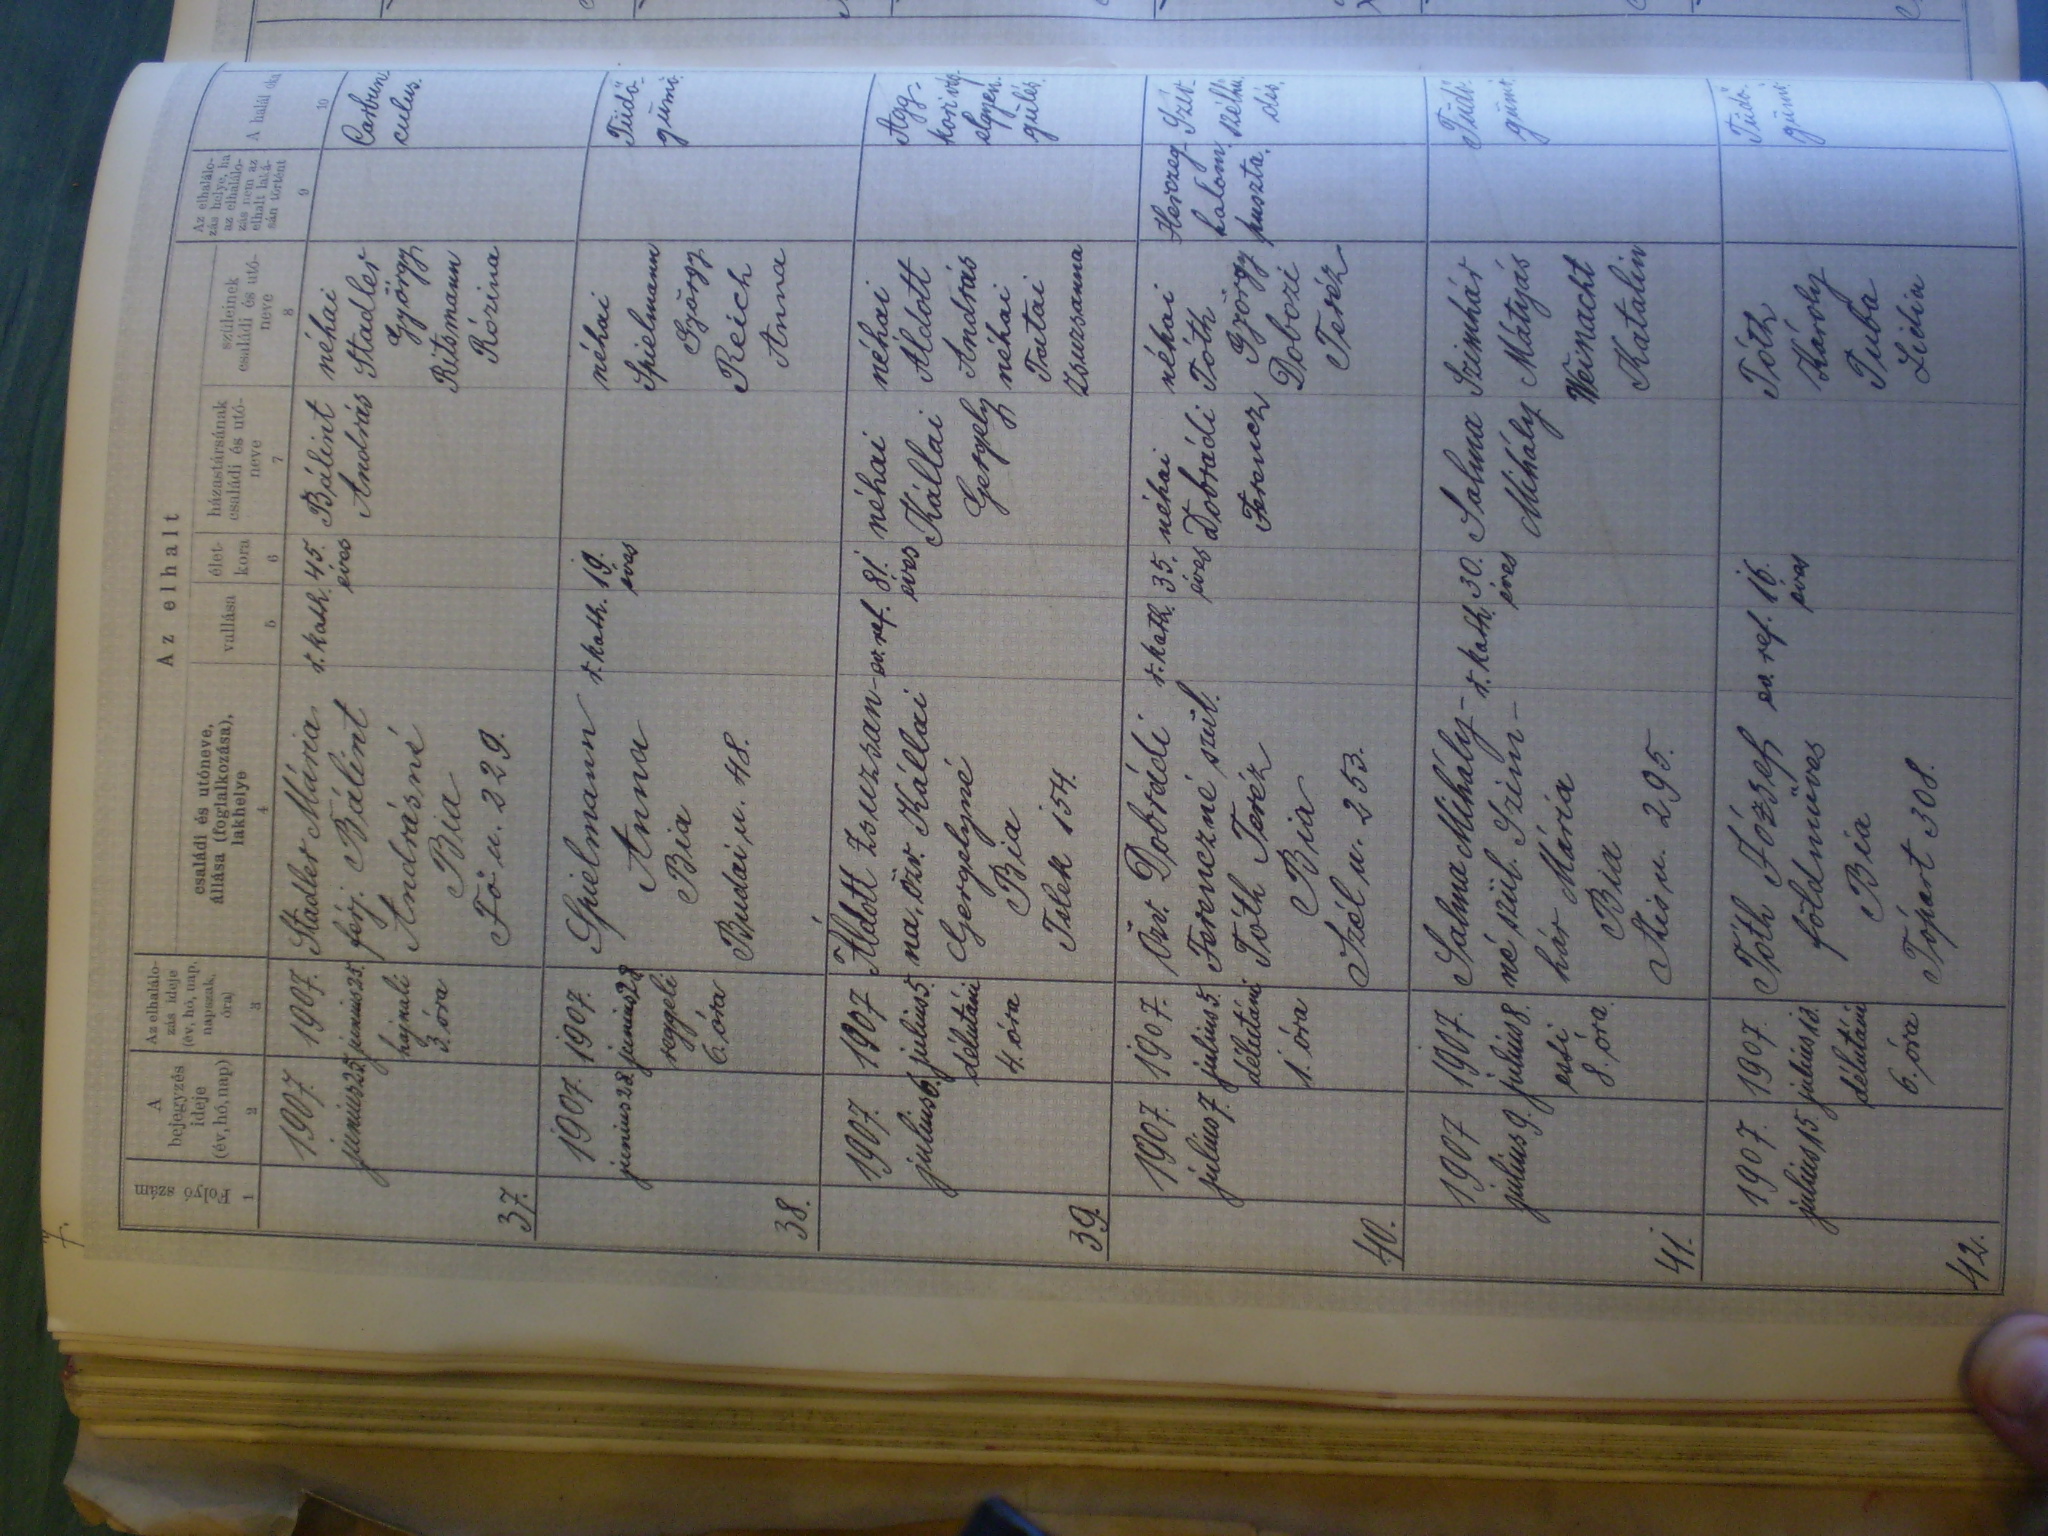 7.
Az elhalt
Folyó szám
A bejegyzés ideje (év, hó, nap)
Az elhalálo-
zás ideje
(év, hó, nap,
napszak,
óra)
családi és utóneve,
állása (foglalkozása),
lakhelye
vallása
élet-
kora
házastársának
családi és utó-
neve
szüleinek
családi és utó-
neve
Az elhalálo-
zás helye, ha
az elhalálo-
zás nem az
elhalt laká-
sán történt
A halál oka
1
2
3
4
5
6
7
8
9
10
37.
1907.
junius 25.
1907.
junius 25.
hajnali
3. óra
Stadler Mária
férj. Bálint
Andrásné
Bia
Fő u. 229.
r. kath.
45.
éves
Bálint
András
néhai
Stadler
György
Ritsmann
Rózina
Carbun
culus.
38.
1907.
junius 28.
1907.
junius 28
reggeli
6. óra
Spielmann
Anna
Bia
Budai u. 48.
r. kath.
19.
éves
néhai
Spielmann
György
Reich
Anna
Tüdő-
gümő.
39.
1907.
julius 6.
1907
julius 5.
délutáni
4. óra
Áldott Zsuzsan-
na, özv. Kállai
Gergelyné
Bia
Telek 154.
ev. ref.
81.
éves
néhai
Kállai
Gergely
néhai
Áldott
András
néhai
Tatai
Zsuzsanna
Agg-
kori vég
elgyen
gülés.
40.
1907.
julius 7.
1907.
julius 5.
délutáni
1. óra
Özv. Dobrádi
Ferenczné szül.
Tóth Teréz
Bia
Szél u. 253.
r. kath.
35.
éves
néhai
Dobrádi
Ferencz
néhai
Tóth
György
Dobozi
Teréz
Herczeg-
halom-
puszta.
Szív-
szélhű
dés.
41.
1907
julius 9.
1907.
julius 8.
esti
8. óra.
Salma Mihály-
né szül. Szim-
hár Mária
Bia
Kis u. 295.
r. kath.
30.
éves
Salma
Mihály
Szimhár
Mátyás
Weinacht
Katalin
Tüdő-
gümő.
42.
1907.
julius 15.
1907.
julius 13.
délutáni
6. óra
Tóth József
földmüves
Bia
Tópart 308.
ev. ref.
16.
éves
Tóth
Károly
Tuba
Lidia
Tüdő-
gümő.